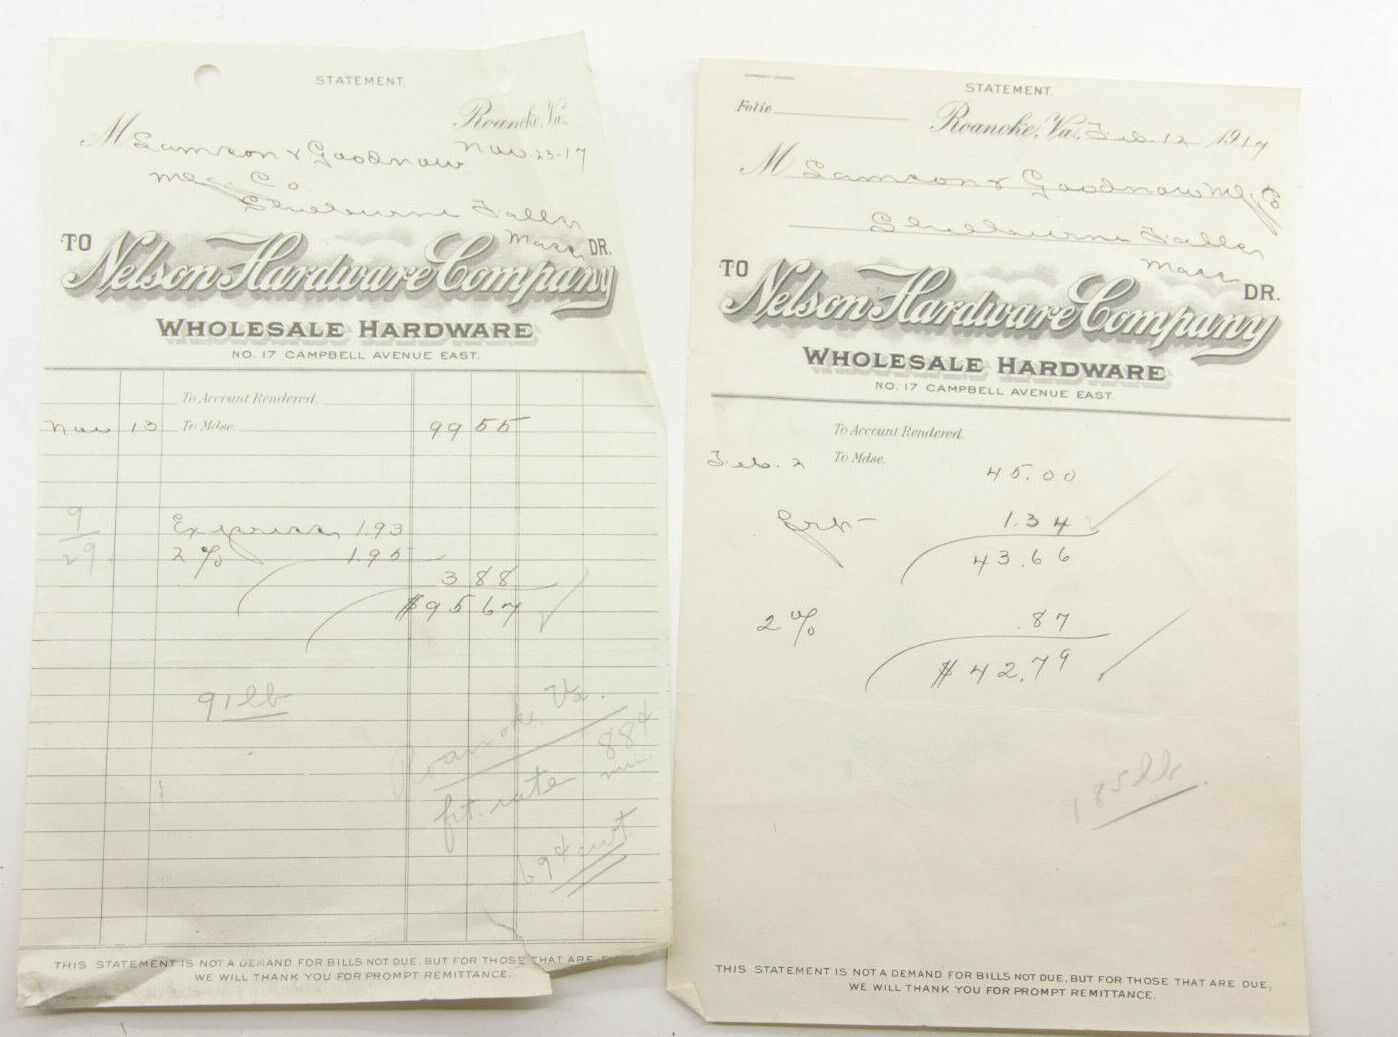 STATEMENT.
Roanoke, Va.,
Nov. 23-17
M Lamson & Goodnow
Mfg Co
Shelburne Falls
Mass
TO DR.
Nelson Hardware Company
WHOLESALE HARDWARE
NO. 17 CAMPBELL AVENUE EAST.
To Account Rendered.
Nov 13 To Mdse. 99 55
9
29
Express 1.93
2 % 1.95
3 88
$95 67
91 lb
Roanoke, Va.
frt. rate 88¢
min.
69¢ cwt.
THIS STATEMENT IS NOT A DEMAND FOR BILLS NOT DUE, BUT FOR THOSE THAT ARE
WE WILL THANK YOU FOR PROMPT REMITTANCE.
STATEMENT.
Folio
Roanoke, Va., Feb. 12 1917
M Lamson & Goodnow Mfg Co
Shelburne Falls
Mass
TO DR.
Nelson Hardware Company
WHOLESALE HARDWARE
NO. 17 CAMPBELL AVENUE EAST.
To Account Rendered.
Feb. 2 To Mdse.
45.00
Frt 1.34
43.66
2 % .87
$42.79
185 lb.
THIS STATEMENT IS NOT A DEMAND FOR BILLS NOT DUE, BUT FOR THOSE THAT ARE DUE,
WE WILL THANK YOU FOR PROMPT REMITTANCE.